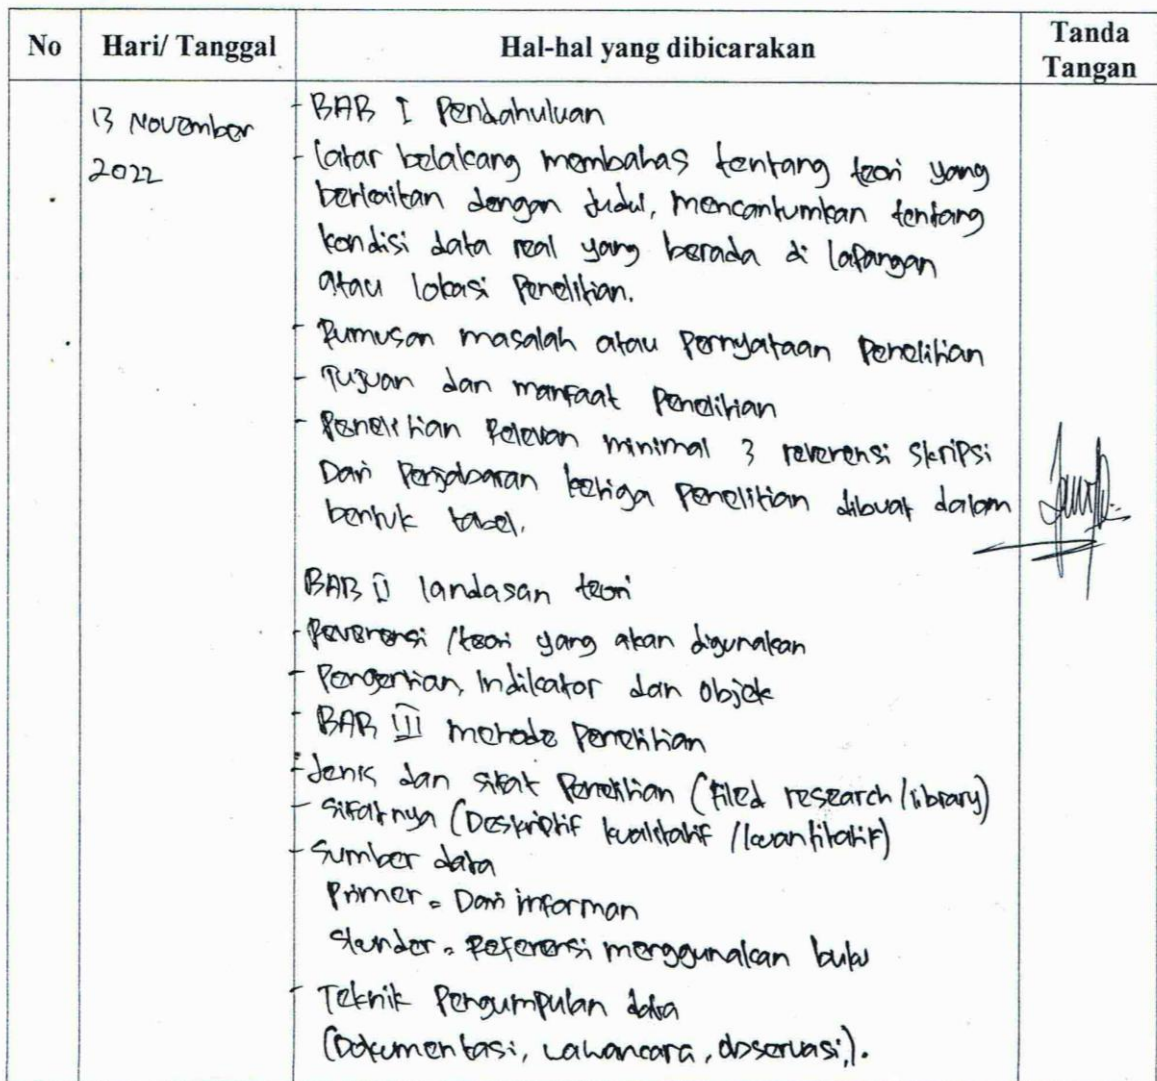 No Hari/ Tanggal Hal-hal yang dibicarakan Tanda Tangan
13 November
2022
- BAB I Pendahuluan
- latar belakang membahas tentang teori yang
berkaitan dengan judul, mencantumkan tentang
kondisi data real yang berada di lapangan
atau lokasi Penelitian.
- Rumusan masalah atau Pernyataan Penelitian
- Tujuan dan manfaat Penelitian
- Penelitian Relevan minimal 3 reverensi skripsi
Dari Penjabaran ketiga Penelitian dibuat dalam
bentuk tabel.
BAB II landasan teori
- Reverensi /teori yang akan digunakan
- Pengertian, Indikator dan objek
- BAB III metode Penelitian
- Jenis dan sifat Penelitian (filed research/library)
- Sifatnya (Deskriptif kualitatif /kuantitatif)
- Sumber data
Primer = Dari informan
Skunder = Referensi menggunakan buku
- Teknik Pengumpulan data
(Dokumentasi, wawancara, observasi,).